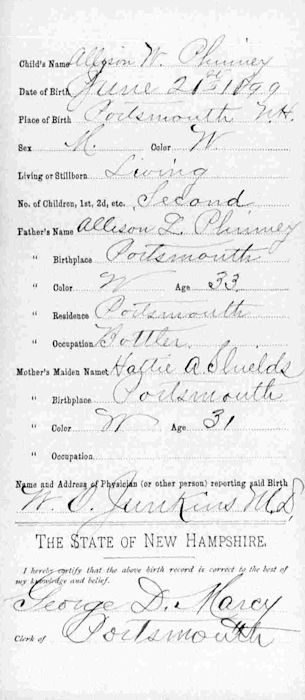 Child's Name Allison W. Phinney
Date of Birth June 21st 1899
Place of Birth Portsmouth N.H.
Sex M. Color W
Living or Stillborn Living
No. of Children, 1st, 2d, etc. Second
Father's Name Allison L. Phinney
" Birthplace Portsmouth
" Color W Age 33
" Residence Portsmouth
" Occupation Bottler
Mother's Maiden Name Hattie A. Shields
" Birthplace Portsmouth
" Color W Age 31
" Occupation
Name and Address of Physician (or other person) reporting said Birth
W. O. Junkins M.D.
THE STATE OF NEW HAMPSHIRE.
I hereby certify that the above birth record is correct to the best of
my knowledge and belief.
George D. Marcy
Clerk of Portsmouth